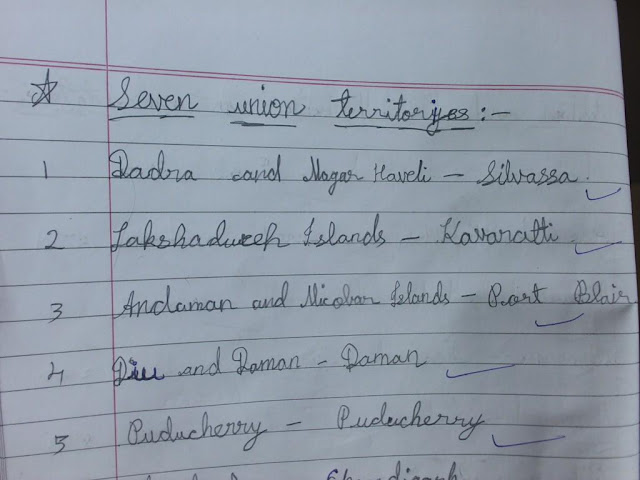 ☆ Seven union territoriyes :-
1 Dadra and Nagar Haveli - Silvassa.
2 Lakshadweeh Islands - Kavaratti
3 Andaman and Nicobar Islands - Port Blair
4 Diu and Daman - Daman
5 Puducherry - Puducherry